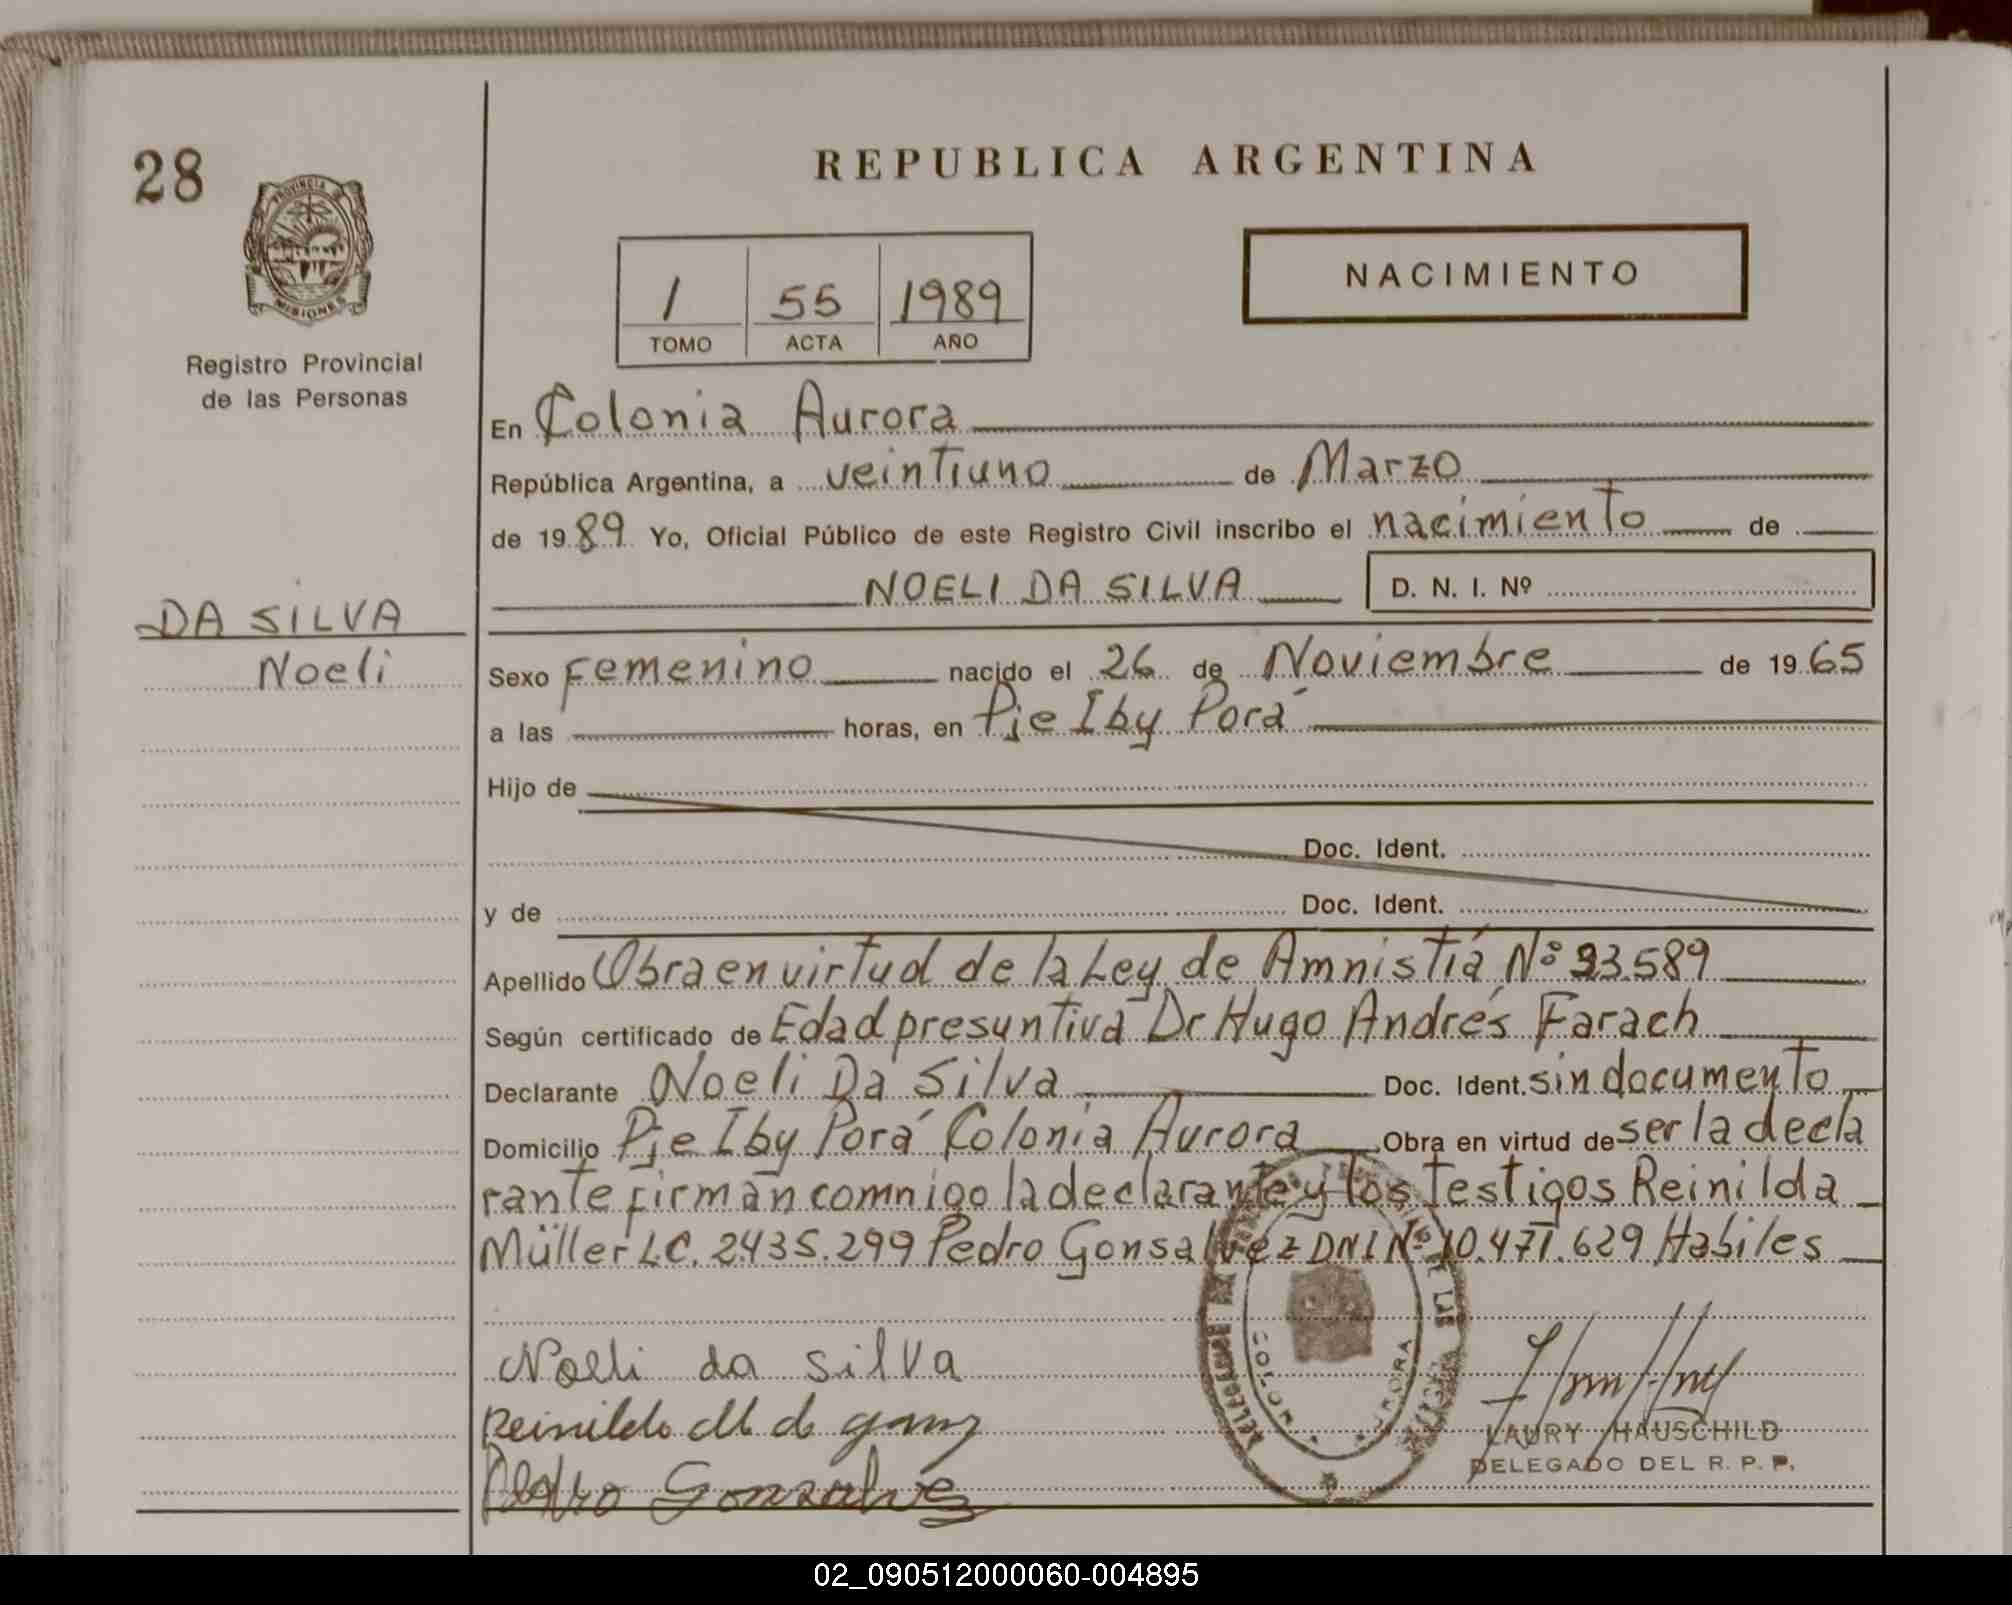 28
PROVINCIA D
MISIONES
Registro Provincial
de las Personas
REPUBLICA ARGENTINA
1 55 1989
TOMO ACTA AÑO
NACIMIENTO
En Colonia Aurora
República Argentina, a veintiuno de Marzo
de 1989 Yo, Oficial Público de este Registro Civil inscribo el nacimiento de
NOELI DA SILVA D. N. I. Nº
DA SILVA
Noeli
Sexo Femenino nacido el 26 de Noviembre de 1965
a las horas, en Pje Iby Porá
Hijo de
Doc. Ident.
y de Doc. Ident.
Apellido Obra en virtud de la Ley de Amnistía Nº 23.589
Según certificado de Edad presuntiva Dr Hugo Andrés Farach
Declarante Noeli Da Silva Doc. Ident. sin documento
Domicilio Pje Iby Porá Colonia Aurora Obra en virtud de ser la decla
rante firman comnigo la declarante y los Testigos Reinilda
Müller L.C. 2.435.299 Pedro Gonsalvez DNI Nº 10.471.629 Habiles
Noeli da silva
Pedro Gonzalvez
COLONIA AURORA
LAURY HAUSCHILD
DELEGADO DEL R. P. P.
02_090512000060-004895